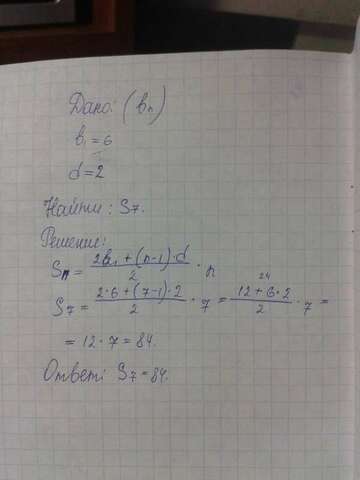 Дано: (bₙ)
b₁ = 6
d = 2
Найти: S₇.
Решение:
Sₙ = (2b₁ + (n-1)·d)/2 · n
S₇ = (2·6 + (7-1)·2)/2 · 7 = (12 + 6·2)/2 · 7 =
24
= 12 · 7 = 84.
Ответ: S₇ = 84.